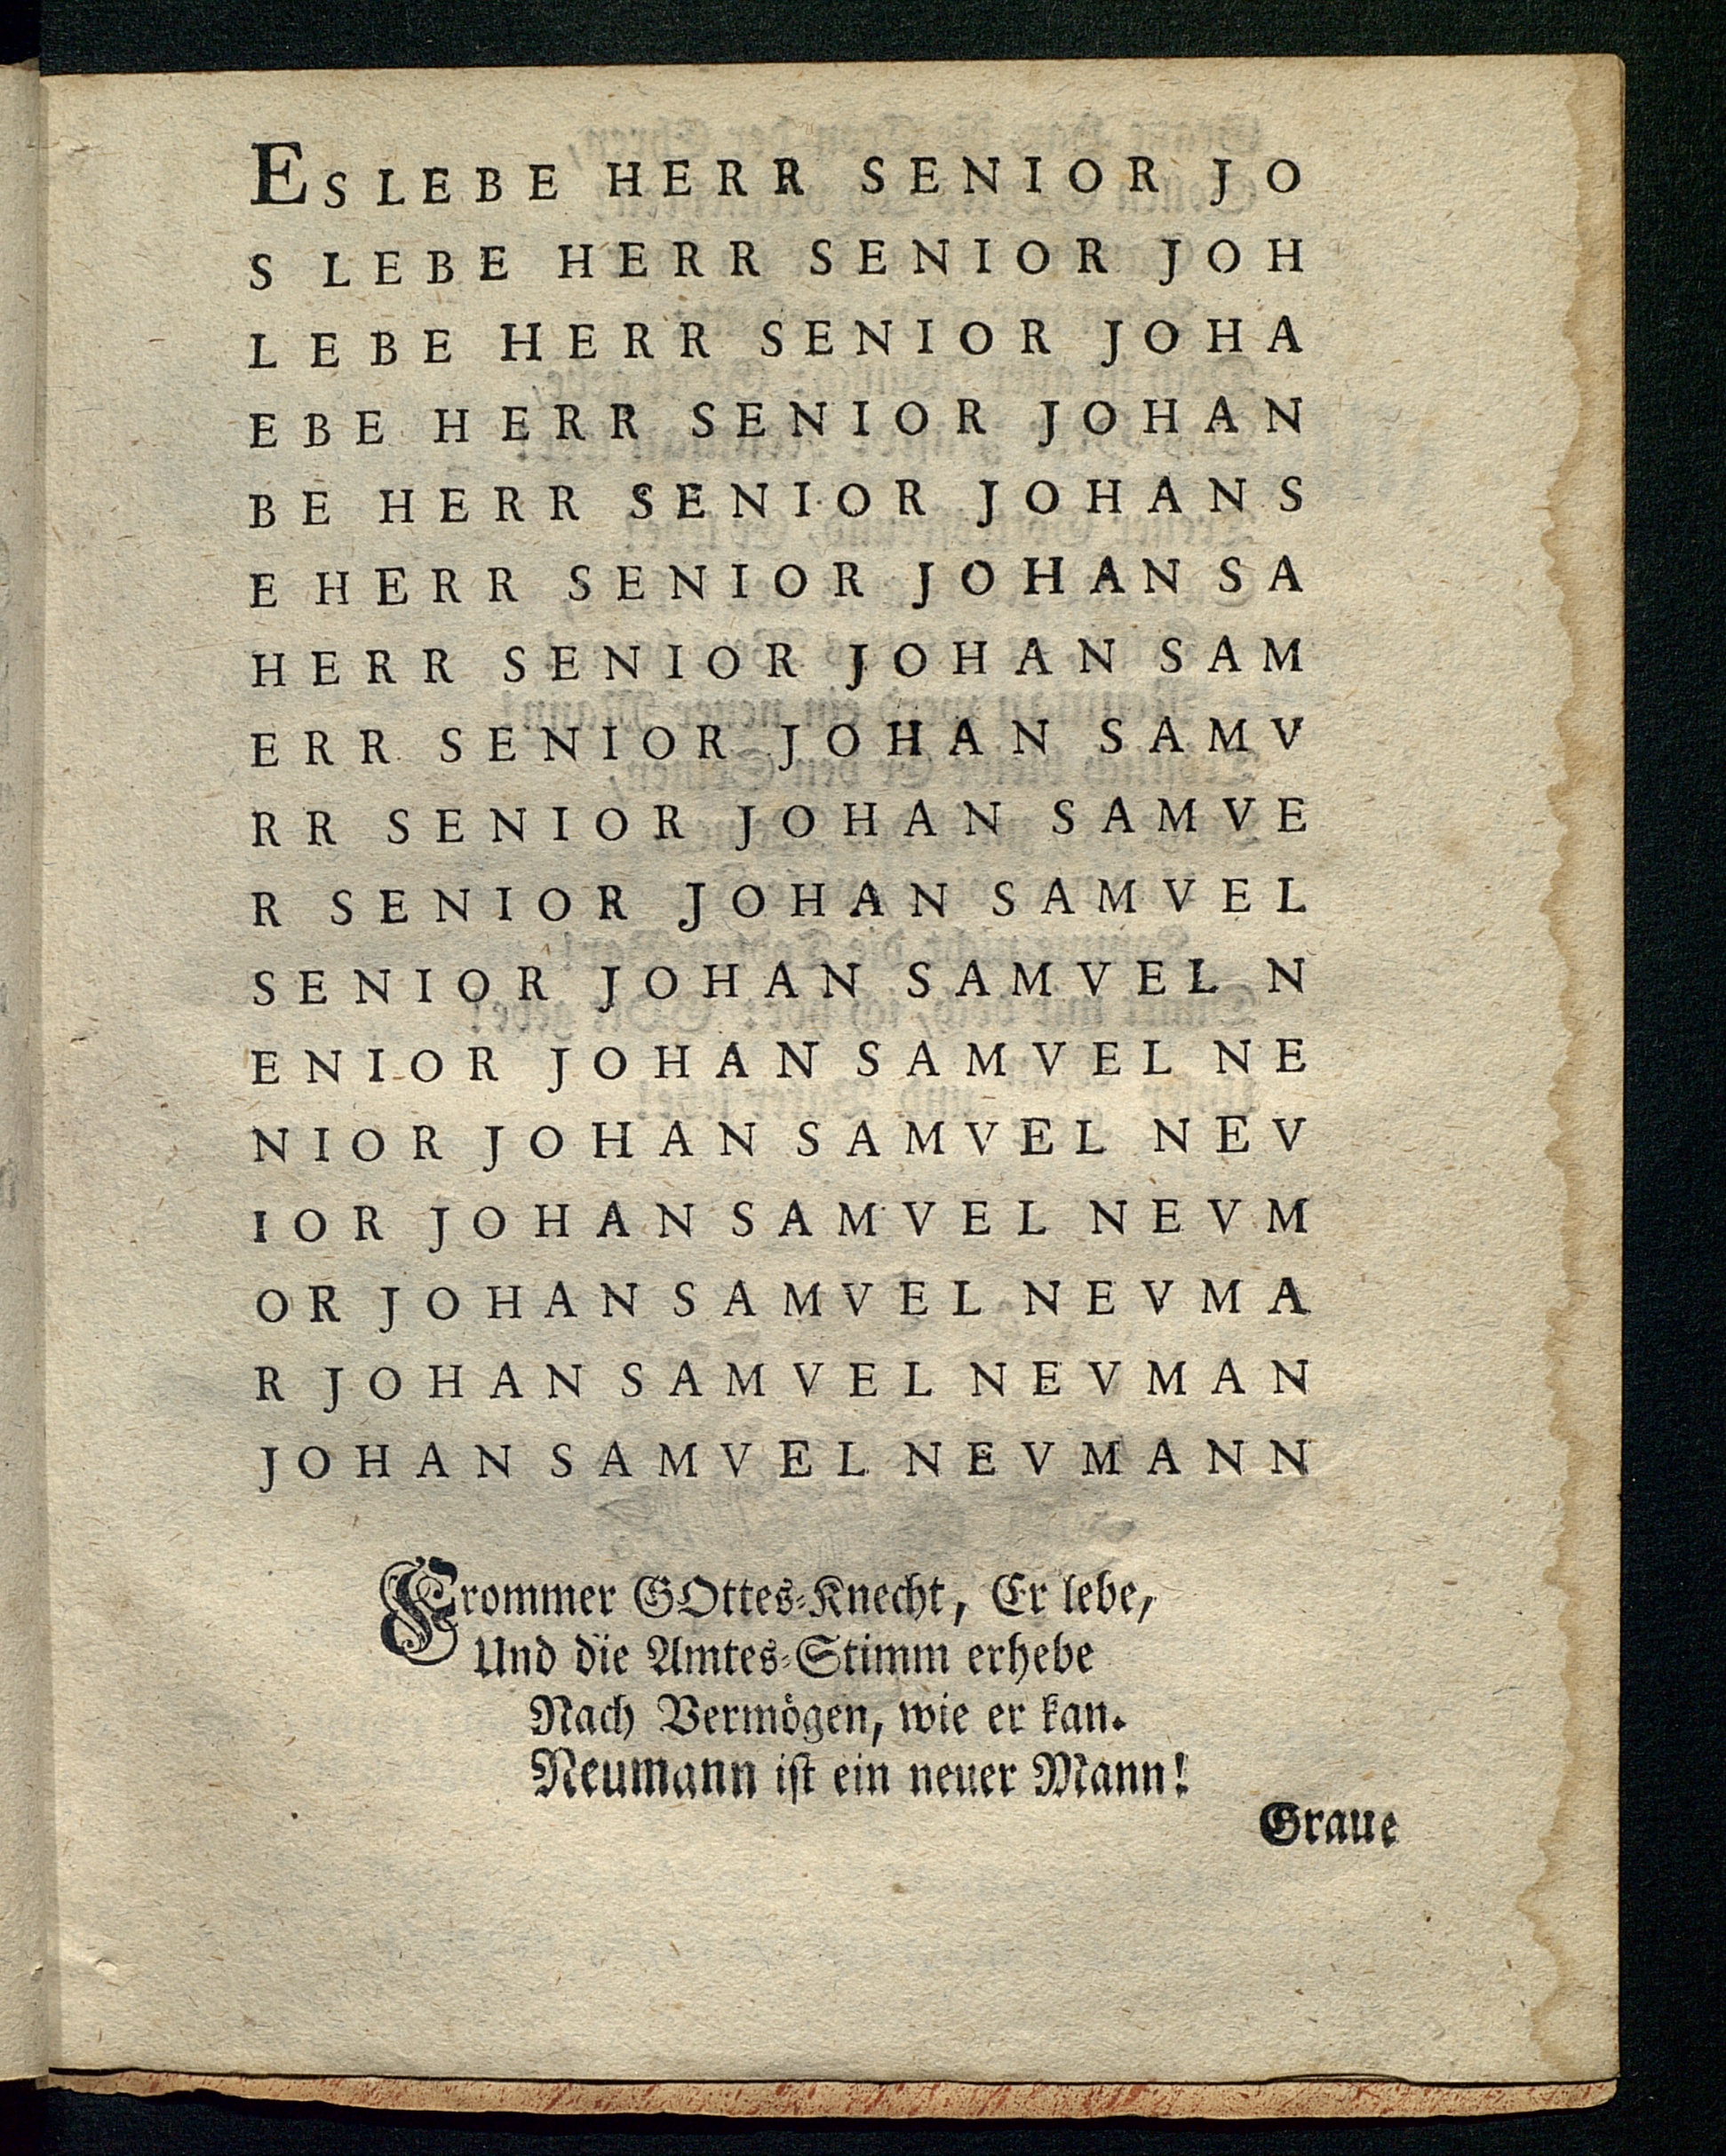 ES LEBE HERR SENIOR JO
S LEBE HERR SENIOR JOH
LEBE HERR SENIOR JOHA
EBE HERR SENIOR JOHAN
BE HERR SENIOR JOHAN S
E HERR SENIOR JOHAN SA
HERR SENIOR JOHAN SAM
ERR SENIOR JOHAN SAMV
RR SENIOR JOHAN SAMVE
R SENIOR JOHAN SAMVEL
SENIOR JOHAN SAMVEL N
ENIOR JOHAN SAMVEL NE
NIOR JOHAN SAMVEL NEV
IOR JOHAN SAMVEL NEVM
OR JOHAN SAMVEL NEVMA
R JOHAN SAMVEL NEVMAN
JOHAN SAMVEL NEVMANN
Frommer GOttes-Knecht, Er lebe,
Und die Amtes-Stimm erhebe
Nach Vermögen, wie er kan.
Neumann ist ein neuer Mann!
Graue